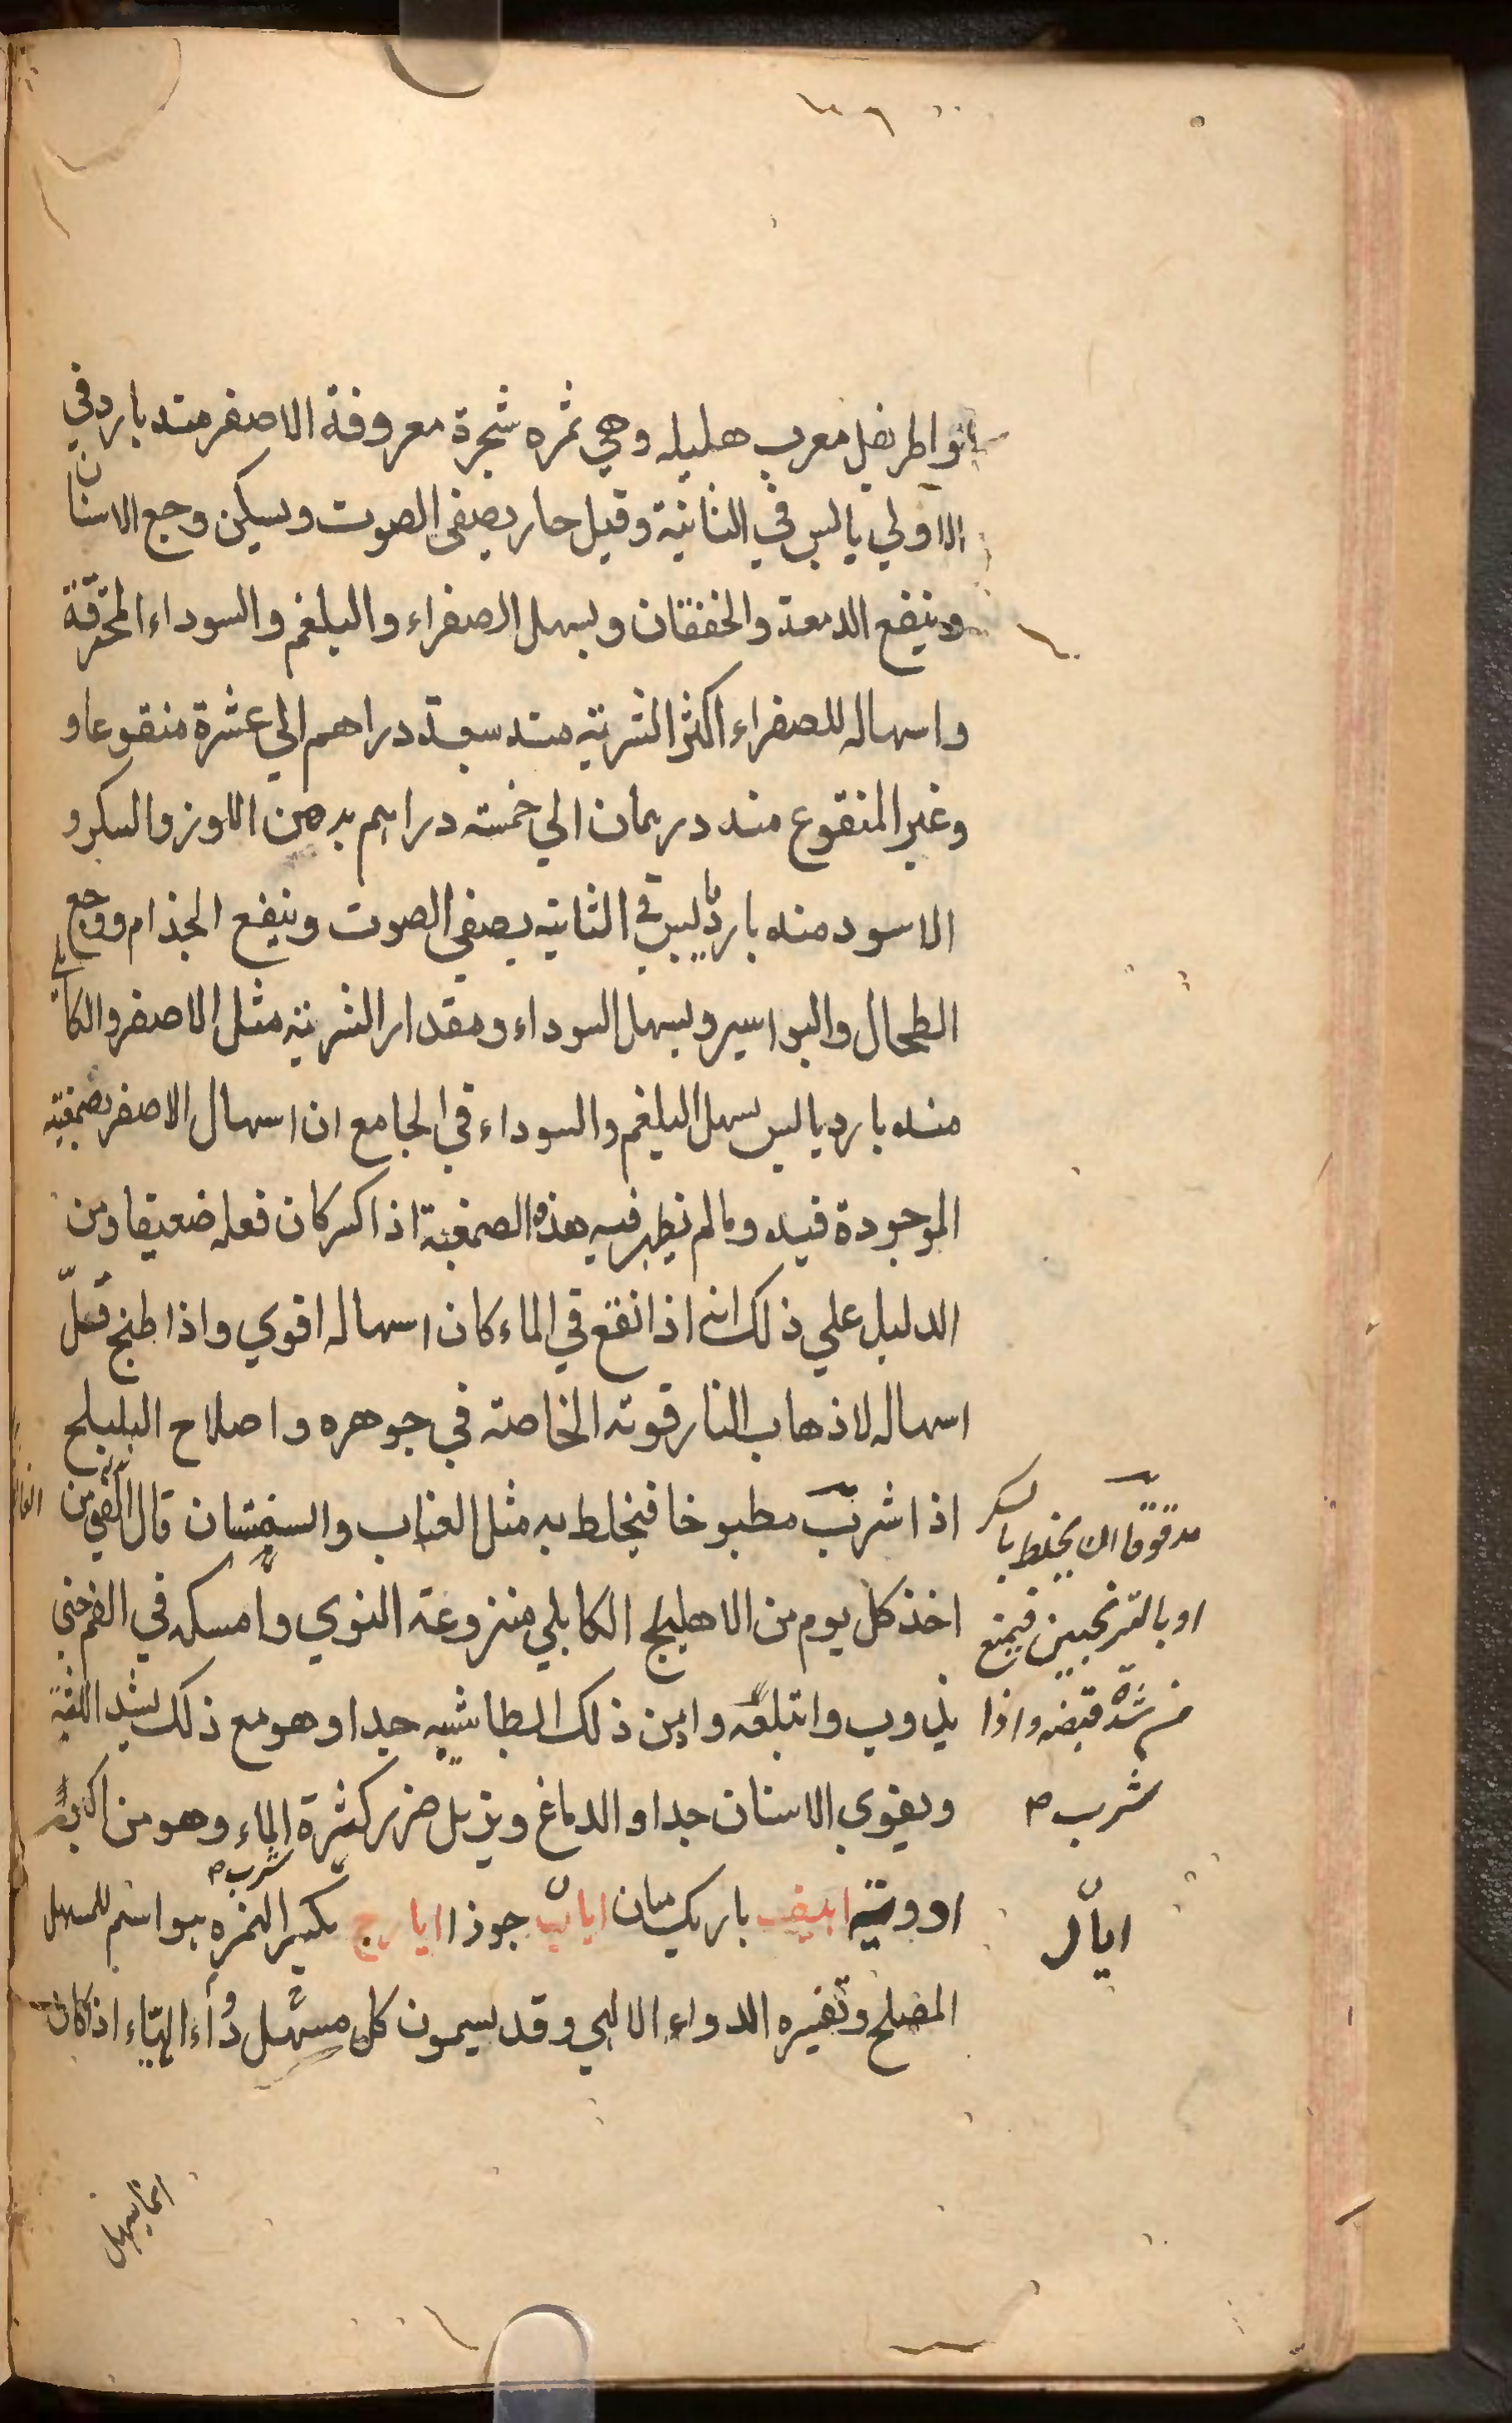 معرب هليله وهي ثمره شجرة معروفة الاصفر منه بارد في
الاولي يابس في الثانية وقيل حار يصفى الصوت ويسكن وجع الاسنان
وينفع الدمعة والخفقان ويسهل الصفراء والبلغم والسوداء المحترقة
واسهاله للصفراء اكثر الشربة منه سبعة دراهم الي عشرة منقوعا و
وغير المنقوع منه درهمان الي خمسته دراهم بدهن اللوز والسكر و
الاسود منه بارد يابس في الثانيه يصفي الصوت وينفع الجذام ووجع
الطحال والبواسير ويسهل السوداء ومقدار الشربة مثل الاصفر والكابلي
منه بارد يابس يسهل البلغم والسوداء في الجامع ان اسهال الاصفر بصمغيته
الموجودة فيه وما لم يظهر فيه هذه الصمغية اذا كسر كان فعله ضعيفا ومن
الدليل علي ذلك انه اذا نقع في الماء كان اسهاله اقوي واذا طبخ قلّ
اسهاله لاذهاب النار قوته الخاصة في جوهره واصلاح البليلج
اذا شرب مطبوخا فيخلط به مثل العناب والسبستان قال من
اخذ كل يوم من الاهليلج الكابلي منزوعة النوي وامسكه في الفم حتي
يذوب وابتلعه وادمن ذلك ابطا شيبه جدا وهو مع ذلك يشد اللثة
ويقوي الاسنان جدا والدماغ ويزيل ضرر كثرة الماء وهو من اكبر
ادويته ابيض باريك ميان اياب جوذا ايارج بكسر الهمزه هو اسم للمسهل
المصلح وتفسيره الدواء الالهي وقد يسمون كل مسهل دواء الهيا اذا كان
مدقوقا ان يخلط بالسكر
او بالترنجبين فيمنع
من شدة قبضه واذا
شرب
ايال
شرب
انما يسهل